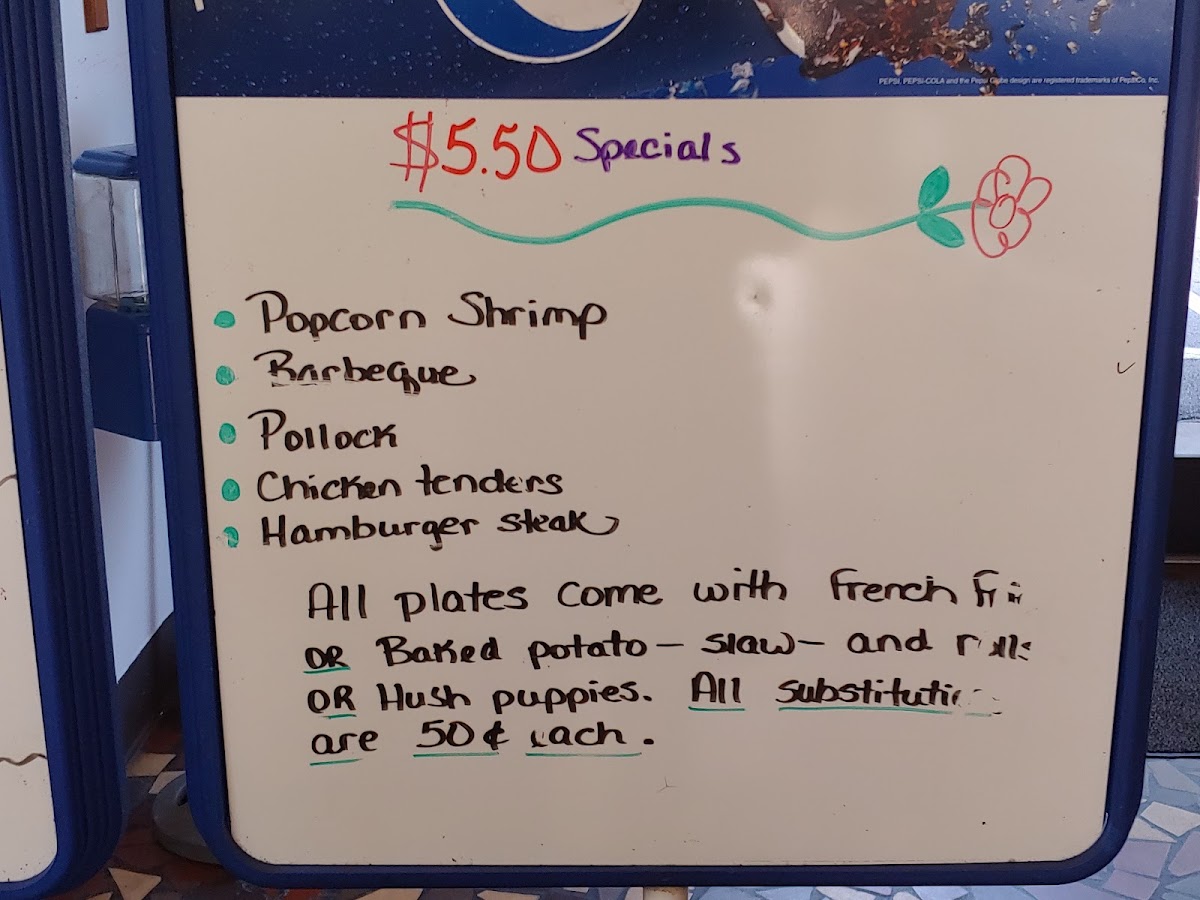 PEPSI, PEPSI-COLA and the Pepsi Globe design are registered trademarks of PepsiCo, Inc.
$5.50 Specials
Popcorn Shrimp
Barbeque
Pollock
Chicken tenders
Hamburger steak
All plates come with French
OR Baked potato - slaw - and rolls
OR Hush puppies. All
are 50¢ each.